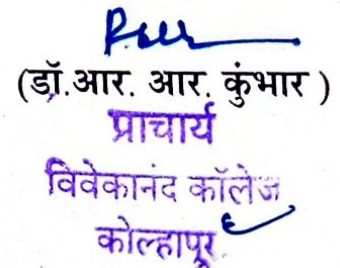 (डॉ.आर. आर. कुंभार )
प्राचार्य
विवेकानंद कॉलेज
कोल्हापूर